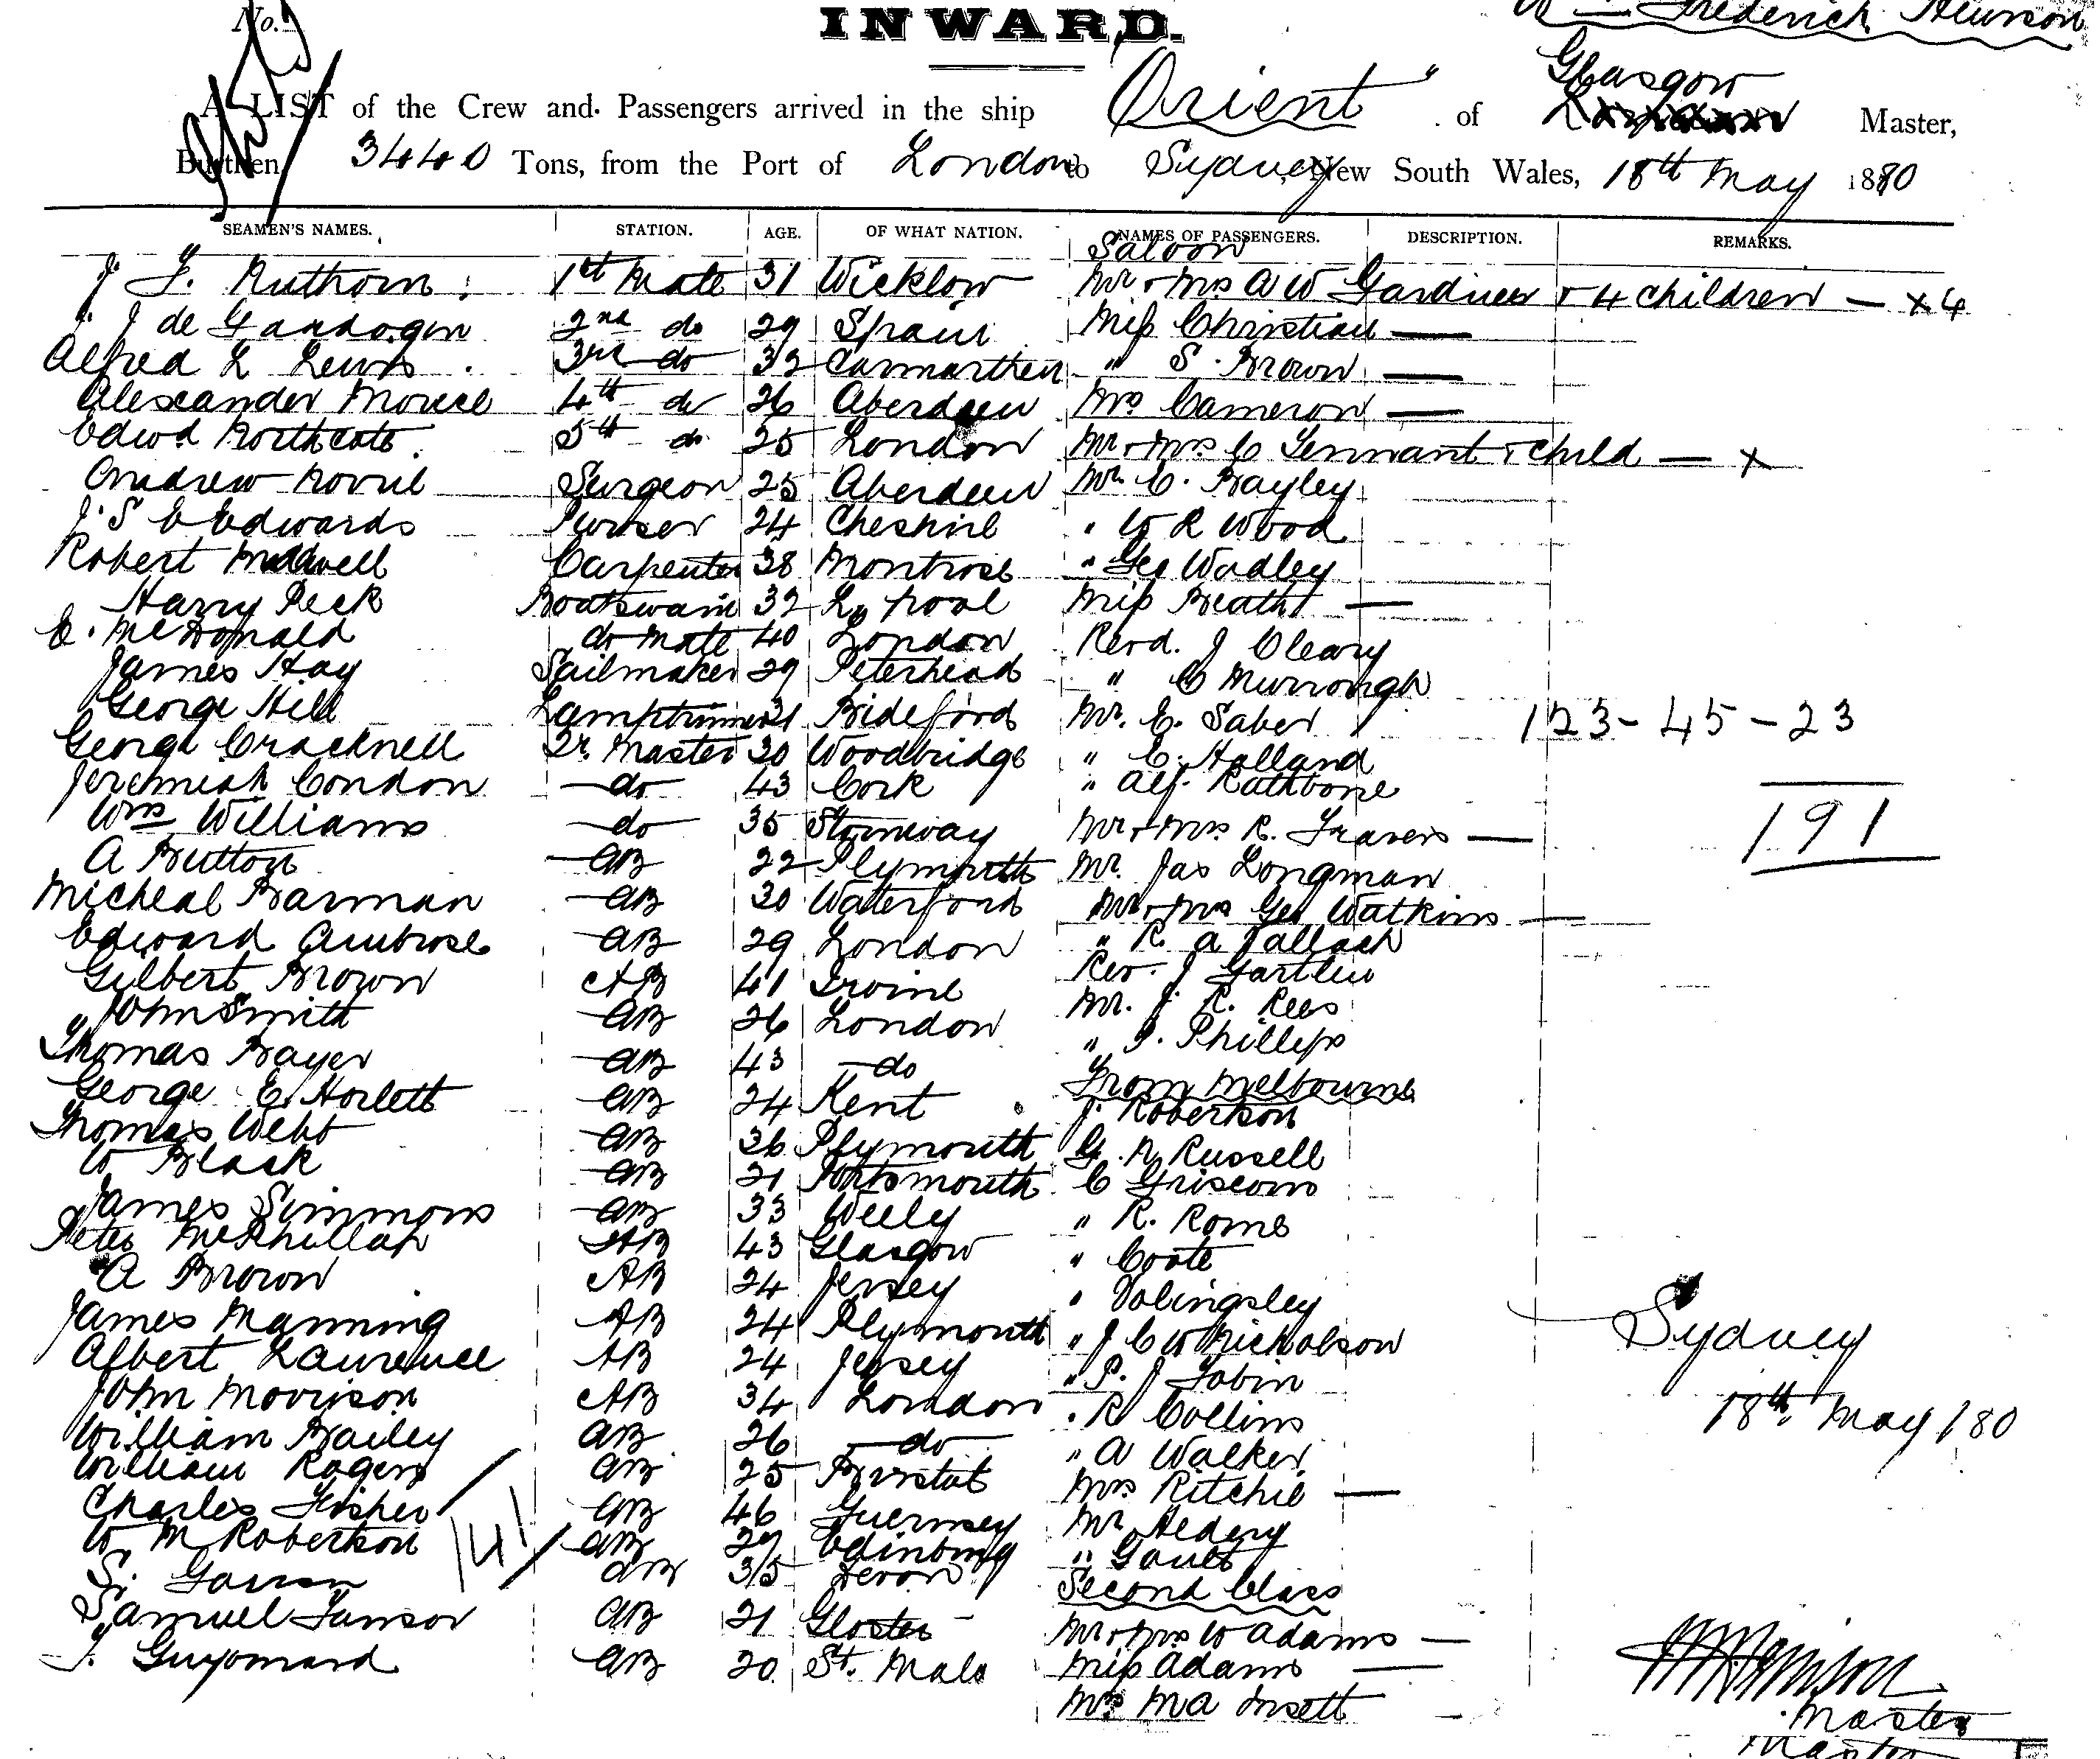 No.
INWARD.
Frederick Hewison
A LIST of the Crew and Passengers arrived in the ship "Orient" of Glasgow Master,
Burthen 3440 Tons, from the Port of London to Sydney, New South Wales, 18th May 1880
SEAMEN'S NAMES. STATION. AGE. OF WHAT NATION. NAMES OF PASSENGERS. DESCRIPTION. REMARKS.
Saloon
J. F. Ruthorn 1st Mate 31 Wicklow Mr & Mrs A W Gardiner & 4 children — x 4
J de 2nd do 29 Spain Miss Christian —
Alfred L Lewis 3rd do 32 Carmarthen " S. Brown —
Alexander 4th do 26 Aberdeen Mrs Cameron —
Edwd Northcote 5th do 25 London Mr & Mrs C Tennant & Child — x
Andrew Surgeon 25 Aberdeen Mr C. Bayley
J. S E Edwards Purser 24 Cheshire " W R Wood
Robert Carpenter 38 Montrose " Geo Wadley
Harry Peck Boatswain 32 L'pool Miss Heath —
E. McDonald do Mate 40 London Revd. J Cleary
James Hay Sailmaker 29 Peterhead " C Murrough
George Hill Lamptrimmer 21 Bideford Mr. E. Saber 123 - 45 - 23
George Cracknell Qr. Master 30 Woodbridge " C. Holland
Jeremiah Condon do 43 Cork " Alf. Rathbone
Wms Williams do 35 Stornway Mr & Mrs R. Travers — 191
A Button AB 22 Plymouth Mr. Jas Longman
Micheal Barman AB 30 Waterford Mr & Mrs Geo Watkins —
Edward Ambrose AB 29 London " R. A Tallack
Gilbert Brown AB 41 Irvine Rev. J Gartlew
John Smith AB 26 London Mr. J. R. Rees
Thomas Bayer AB 43 do " J. Phillips
George E. Horlett AB 24 Kent From Melbourne
J. Robertson
Thomas Webb AB 36 Plymouth G. R Russell
W Black AB 21 Portsmouth C Griscom
James Simmons AB 33 Weely " R. Rome
Peter McPhillap AB 43 Glasgow " Coote
A Brown AB 24 Jersey " Dolingsley
James Manning AB 24 Plymouth " J C W Nicholson
Albert Laurence AB 24 Jersey " P. J Tobin
John Morrison AB 34 London " R Collins
William Bailey AB 26 do " A Walker
William Rogers AB 25 Bristol Mrs Ritchie —
Charles Fisher AB 46 Guernsey Mr
W M Robertson AB 29 Edinburg " Gault
S. AB 35 Devon Second Class
Samuel AB 21 Gloster Mr & Mrs W Adams —
J. Guyomard AB 20 St. Malo Miss Adams —
Mrs M A
141
Sydney
18th May / 80
Master